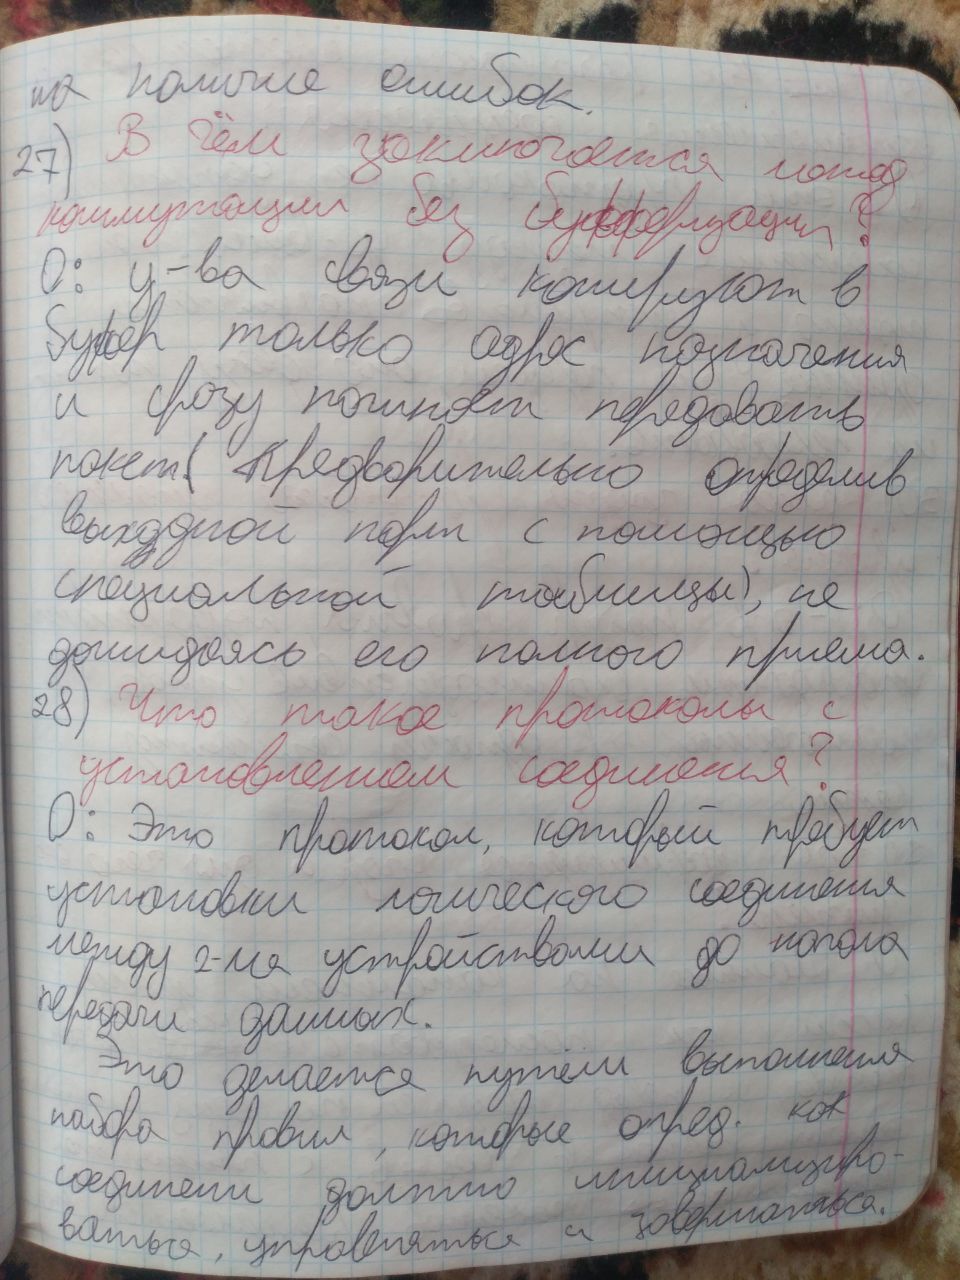 на наличие ошибок.
27) В чём заключается метод
коммутации без буфферизации?
О: у-ва связи копируют в
буфер только адрес назначения
и сразу починает передавать
пакет (предварительно определив
выходной порт с помощью
специальной таблицы), не
дожидаясь его полного приема.
28) Что такое протоколы с
установлением соединения?
О: Это протокол, который требует
установки логического соединения
между 2-мя устройствами до начала
передачи данных.
Это делается путём выполнения
набора правил, которые опред. как
соединени должно инициализиро-
ваться, управляться и завершаться.